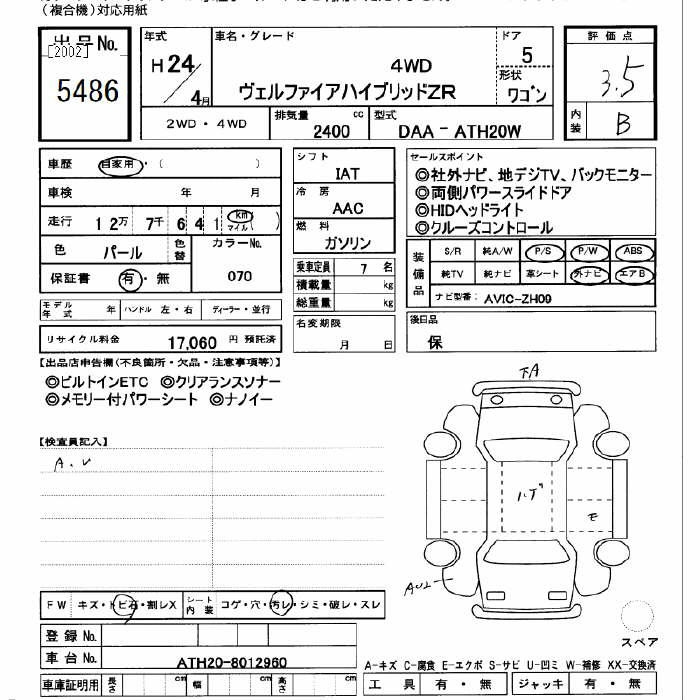 (複合機)対応用紙
出品No.
[2002]
5486
年式
H24/4月
車名・グレード
4WD
ヴェルファイアハイブリッドZR
ドア
5
形状
ワゴン
評価点
3.5
内装
B
2WD・4WD
排気量
2400 cc
型式
DAA-ATH20W
車歴
自家用・( )
車検 年 月
走行 12万 7千 6 4 1 km マイル( )
色 パール
色替
カラーNo.
070
保証書 有・無
モデル年式 年
ハンドル 左・右
ディーラー・並行
リサイクル料金 17,060 円 預託済
シフト
IAT
冷房
AAC
燃料
ガソリン
乗車定員 7 名
積載量 kg
総重量 kg
名変期限
月 日
セールスポイント
◎社外ナビ、地デジTV、バックモニター
◎両側パワースライドドア
◎HIDヘッドライト
◎クルーズコントロール
装備品
S/R 純A/W P/S P/W ABS
純TV 純ナビ 革シート 外ナビ エアB
ナビ型番: AVIC-ZH09
後日品
保
【出品店申告欄(不良箇所・欠品・注意事項等)】
◎ビルトインETC ◎クリアランスソナー
◎メモリー付パワーシート ◎ナノイー
【検査員記入】
A.U
下A
ハゲ
モ
AU2
スペア
FW キズ・トビ石・割レX
シート内装 コゲ・穴・汚レ・シミ・破レ・スレ
登録No.
車台No. ATH20-8012960
車庫証明用 長さ cm 幅 cm 高さ cm
A-キズ C-腐食 E-エクボ S-サビ U-凹ミ W-補修 XX-交換済
工具 有・無 ジャッキ 有・無